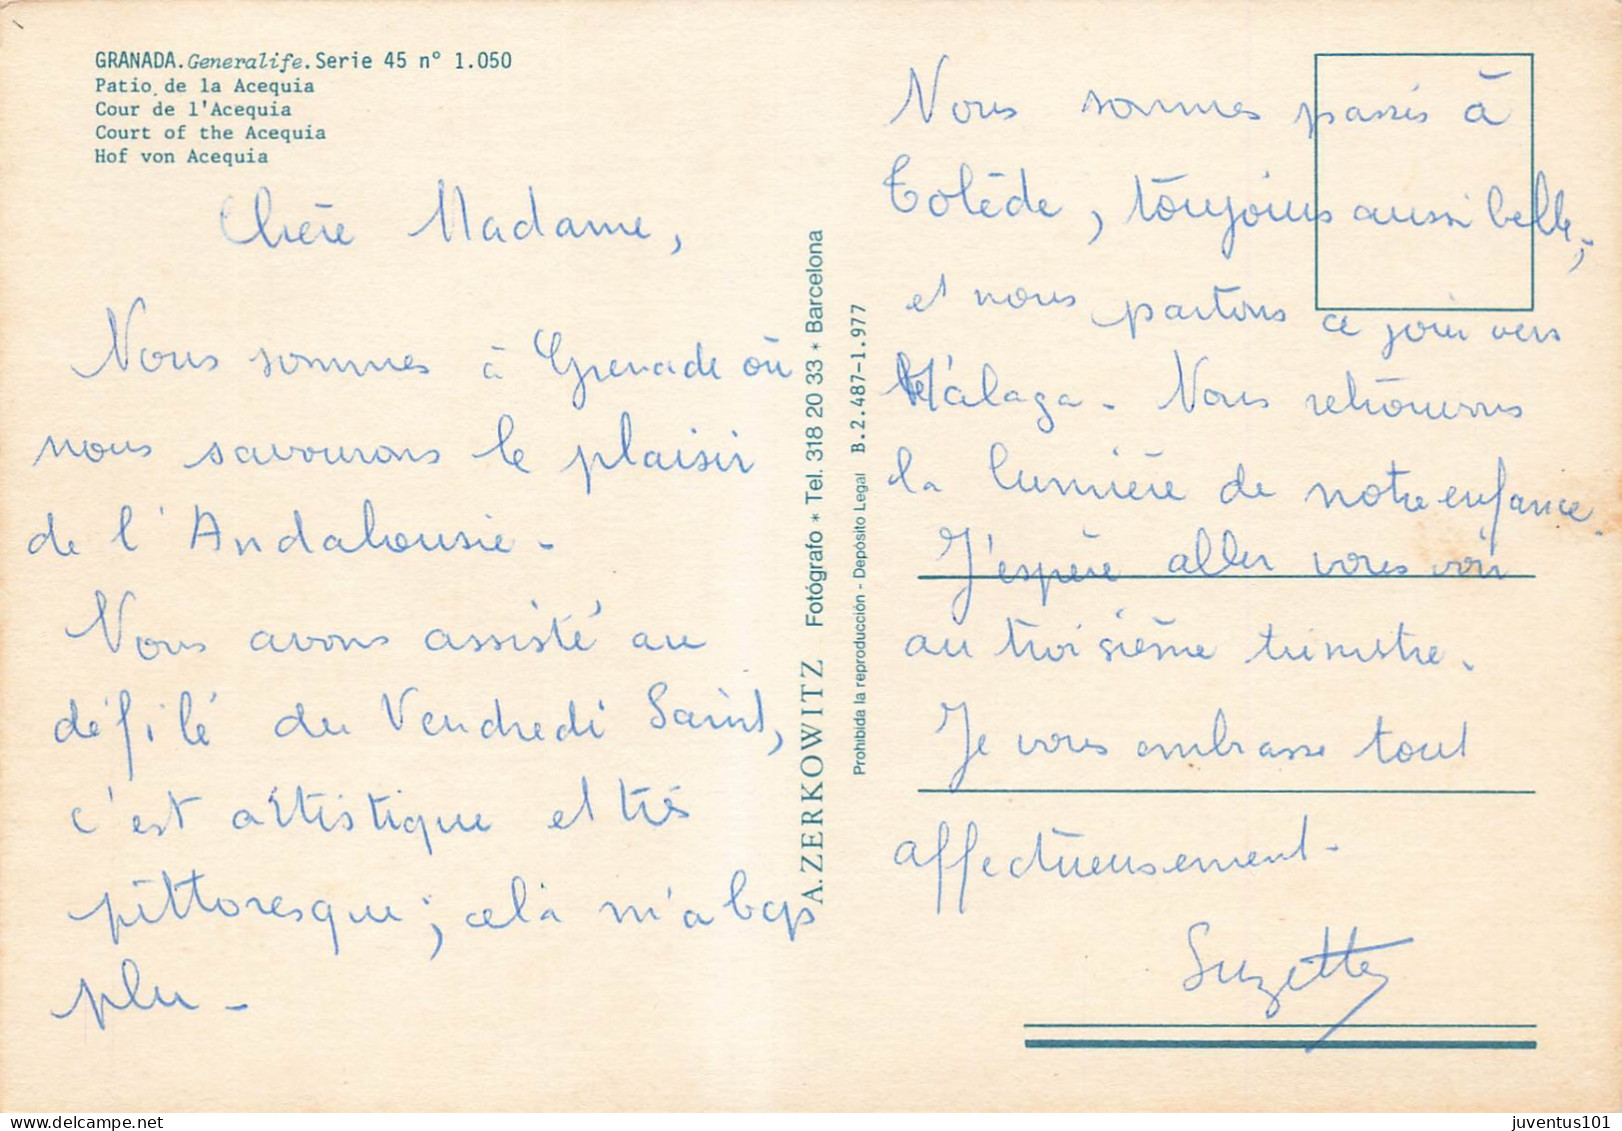 GRANADA.Generalife.Serie 45 n° 1.050
Patio de la Acequia
Cour de l'Acequia
Court of the Acequia
Hof von Acequia
Chère Madame,
Nous sommes à Grenade où
nous savourons le plaisir
de l'Andalousie -
Nous avons assisté au
défilé du Vendredi Saint,
c'est artistique et très
pittoresque ; celà m'a bcp
plu -
A. ZERKOWITZ Fotógrafo * Tel. 318 20 33 * Barcelona
Prohibida la reproducción - Depósito Legal B.2.487-1.977
Nous sommes passés à
Tolède, toujours aussi belle,
et nous partons ce jour vers
Málaga - Nous retrouvons
la lumière de notre enfance.
J'espère aller vous voir
au troisième trimestre.
Je vous embrasse tout
affectueusement -
Suzette
juventus101